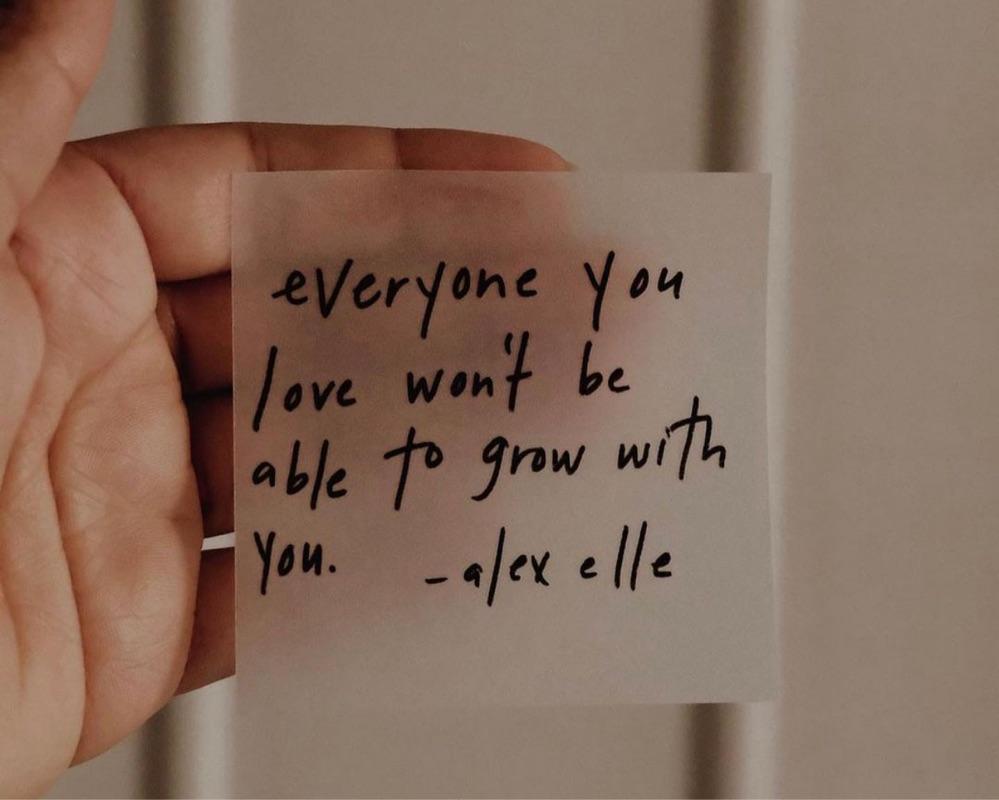 everyone you
love won't be
able to grow with
you. - alex elle